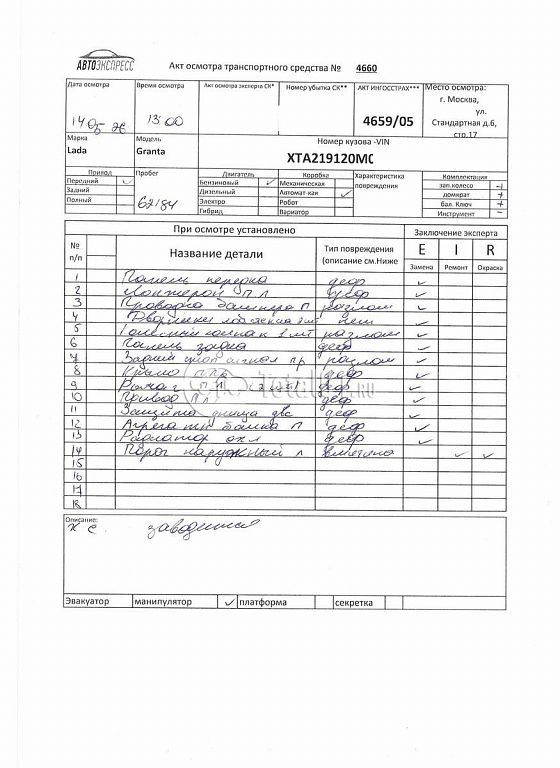 АВТОЭКСПРЕСС
Акт осмотра транспортного средства № 4660
Дата осмотра
Время осмотра
Акт осмотра эксперта СК*
Номер убытка СК**
АКТ ИНГОССТРАХ***
Место осмотра:
г. Москва,
ул.
Стандартная д.6,
стр.17
13:00
4659/05
Марка
Lada
Модель
Granta
Номер кузова -VIN
XTA219120M
Привод
Передний ✓
Задний
Полный
Пробег
62184
Двигатель
Бензиновый ✓
Дизельный
Электро
Гибрид
Коробка
Механическая
Автомат-кая ✓
Робот
Вариатор
Характеристика
повреждения
Комплектация
зап.колесо
домкрат +
бал. Ключ +
Инструмент –
При осмотре установлено
Заключение эксперта
№
п/п
Название детали
Тип повреждения
(описание см.Ниже
E I R
Замена Ремонт Окраска
1 Панель передка деф ✓
2 Лонжерон П Л деф ✓
3 Проводка бампера П разлом ✓
4 нет ✓
5 разлом ✓
6 Панель задка деф ✓
7 Задний стоп сигнал пр разлом ✓
8 Крыло п.пр деф ✓
9 Рычаг деф ✓
10 Привод П Л деф ✓
11 Защита днища двс деф ✓
12 бампа П деф ✓
13 Радиатор охл деф ✓
14 Порог наружный л вмятина ✓ ✓
15
16
17
18
Total01.RU
Описание:
заводится
Эвакуатор манипулятор ✓ платформа секретка